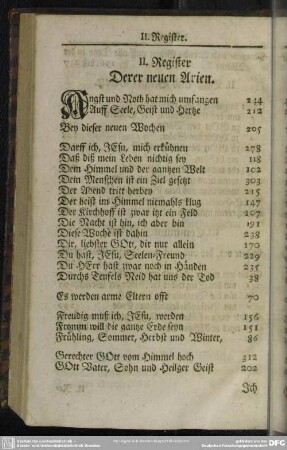 II. Register.
II. Register
Derer neuen Arien.
Angst und Noth hat mich umfangen 244
Auff Seele, Geist und Hertze 212
Bey dieser neuen Wochen 205
Darff ich, JEsu, mich erkühnen 278
Daß diß mein Leben nichtig sey 118
Dem Himmel und der gantzen Welt 102
Dem Menschen ist ein Ziel gesetzt 303
Der Abend tritt herbey 215
Der heist im Himmel niemahls klug 147
Der Kirchhoff ist zwar itzt ein Feld 297
Die Nacht ist hin, ich aber bin 191
Diese Woche ist dahin 238
Dir, liebster GOtt, dir nur allein 170
Du hast, JEsu, Seelen-Freund 229
Du HErr hast zwar noch in Händen 235
Durchs Teufels Neid hat uns der Tod 38
Es werden arme Eltern offt 70
Freudig muß ich, JEsu, werden 156
Fromm will die gantze Erde seyn 151
Frühling, Sommer, Herbst und Winter, 86
Gerechter GOtt vom Himmel hoch 312
GOtt Vater, Sohn und Heilger Geist 202
Ich